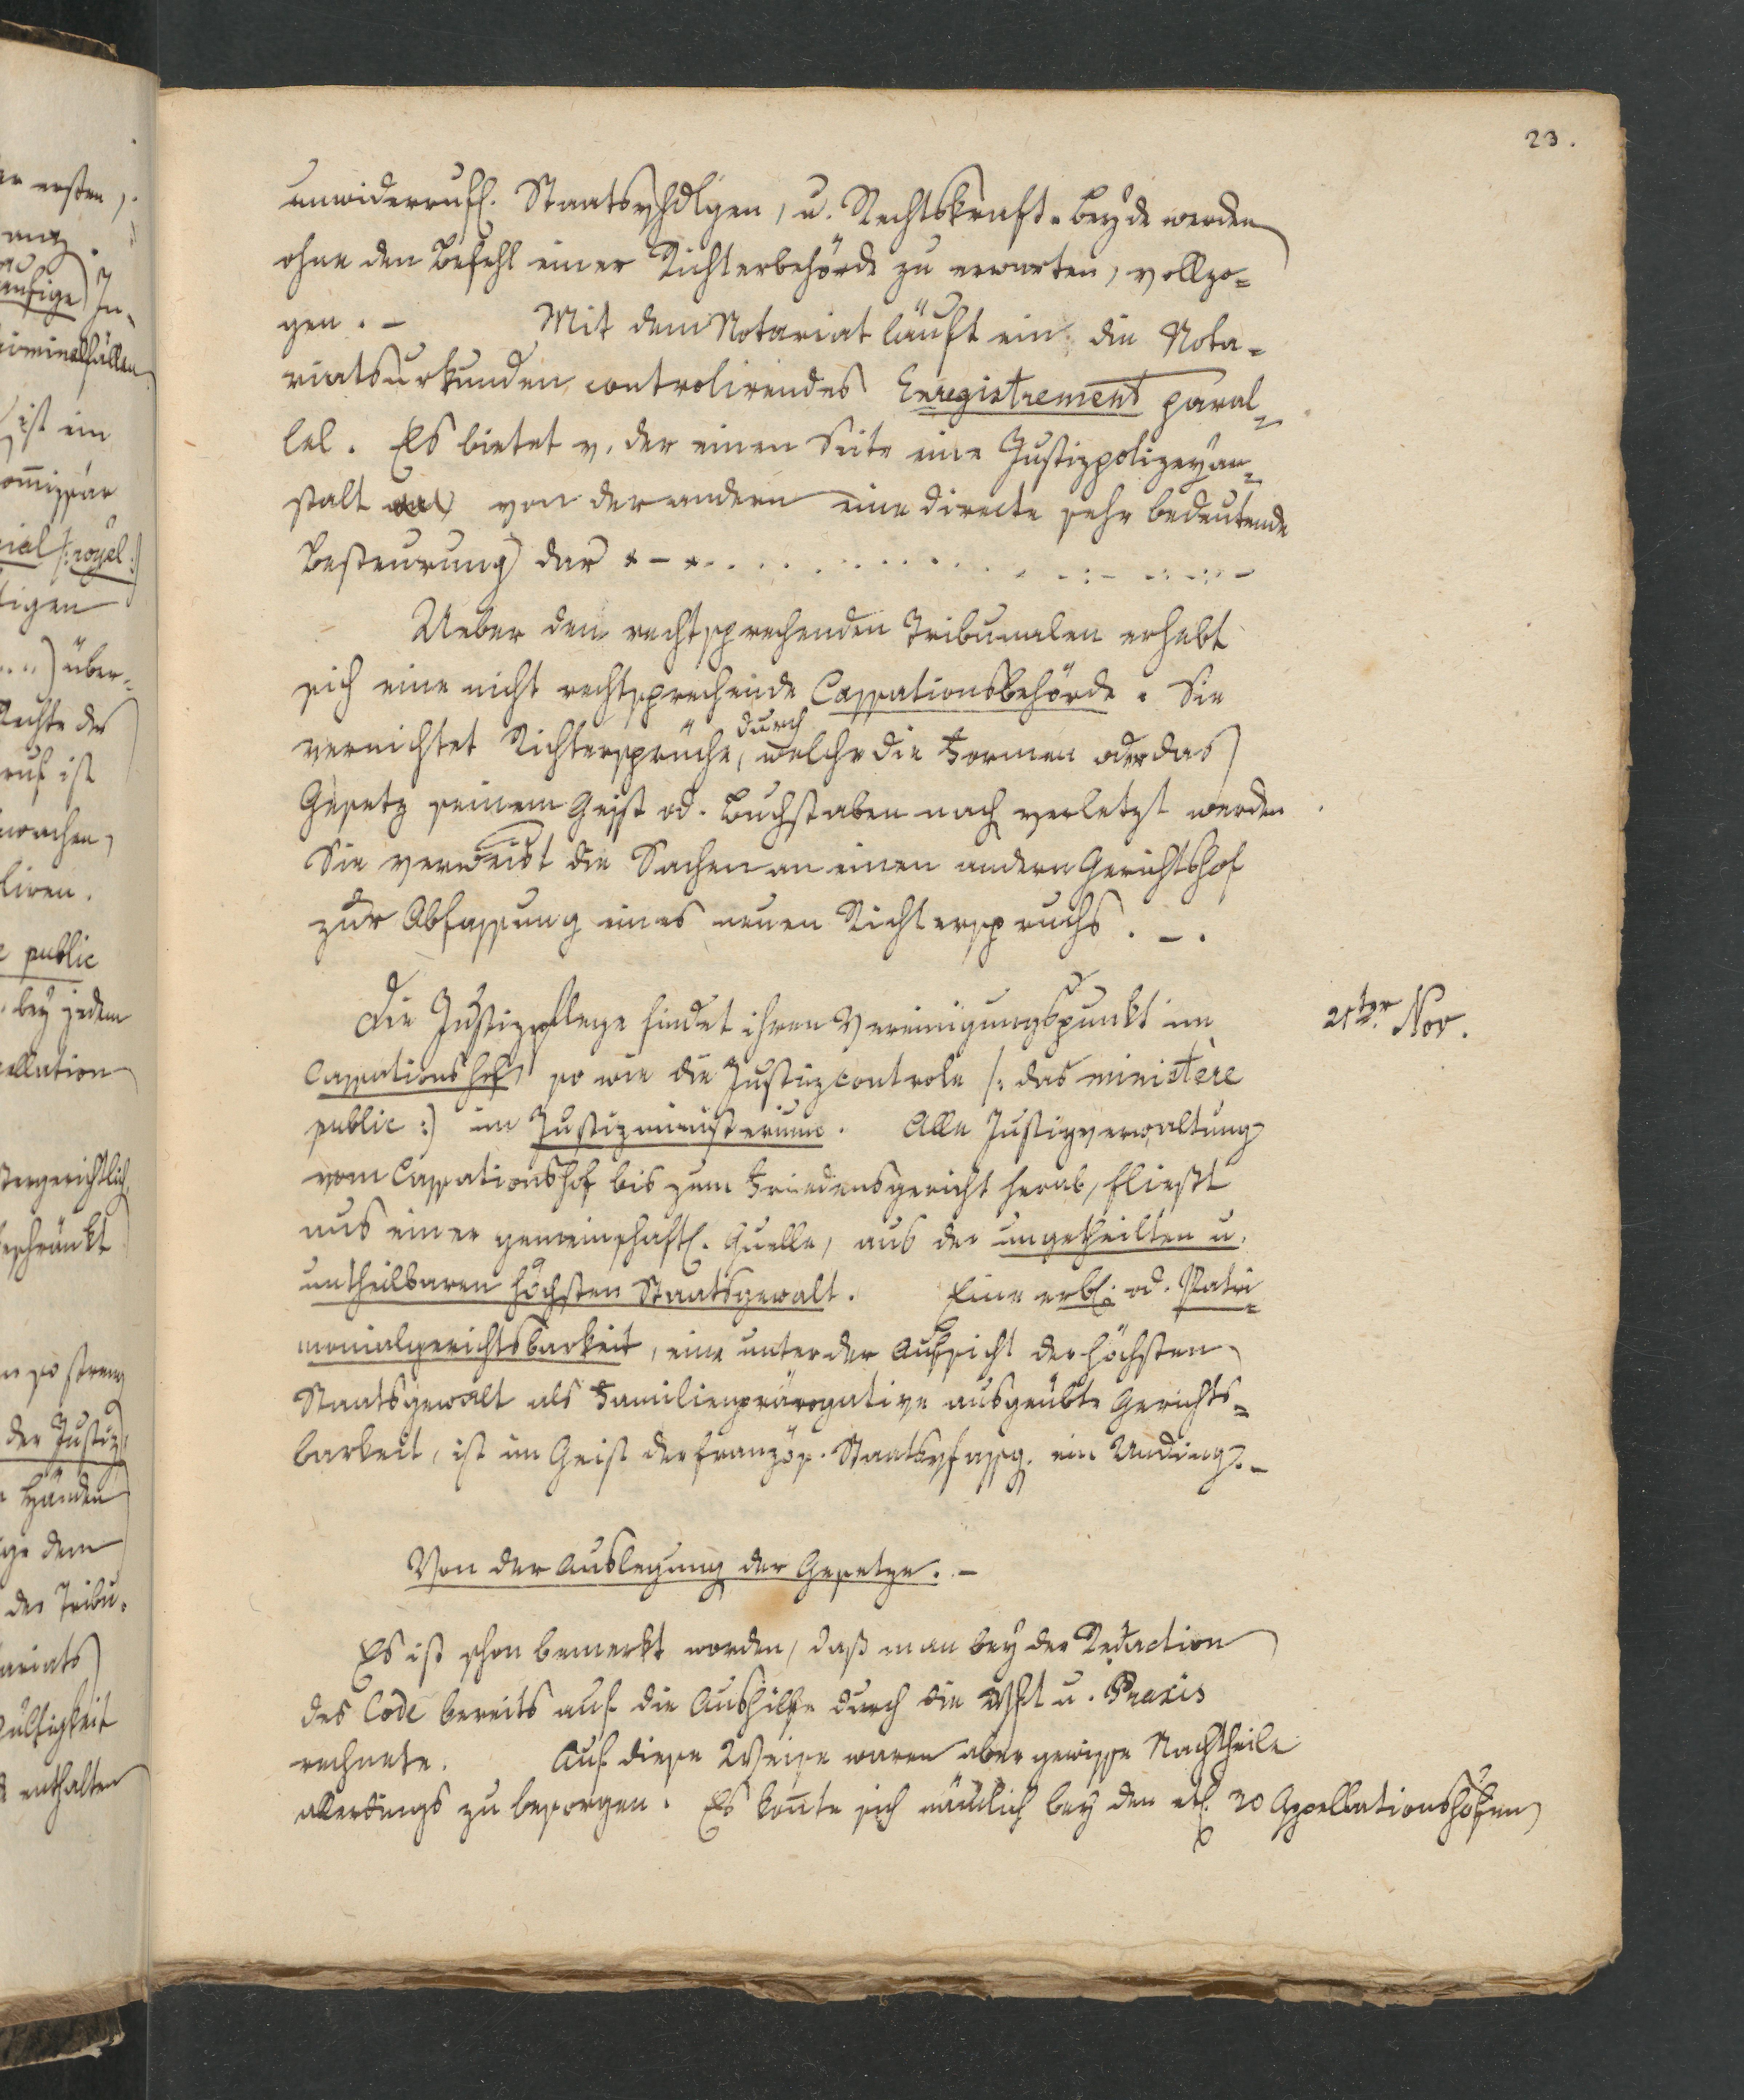 23.
unwiderrufl. Staatsvhdlgen, u. Rechtskraft. Beyde werden
ohne den Befehl einer Richterbehörde zu erwarten, vollzo-
gen. – Mit dem Notariat läuft ein, die Nota-
riatsurkunden controlirendes Enregistrement paral-
lel. Es bietet v. der einen Seite eine Justizpolizeyan-
stalt von der andern eine directe sehr bedeutende
Besteurung dar
Ueber den rechtsprechenden Tribunalen erhebt
sich eine nicht rechtsprechende Cassationsbehörde. Sie
vernichtet Richtersprüche, durch welche die Formen oder das
Gesetz seinem Geist od. Buchstaben nach verletzt werden
Sie verweist die Sachen an einen andern Gerichtshof
zur Abfassung eines neuen Richterspruchs. –.
Die Justizpflege findet ihren Vereinigungspunkt im
21ter Nov.
Cassationshof so wie die Justizcontrole /: das ministère
public :) im Justizministerium. Alle Justizverwaltung
vom Cassationshof bis zum Friedensgericht herab, fließt
aus einer gemeinschaftl. Quelle, aus der ungetheilten u.
untheilbaren höchsten Staatsgewalt. Eine erbl. od. Patri-
monialgerichtsbarkeit, eine unter der Aufsicht der höchsten
Staatsgewalt als Familienprärogative ausgeübte Gerichts-
barkeit, ist im Geist der französ. Staatsvfassg. ein Unding. –
Von der Auslegung der Gesetze. –
Es ist schon bemerkt worden, daß man bey der Redaction
des Code bereits auf die Aushilfe durch die u. Praxis
rechnete. Auf diese Weise waren aber gewisse Nachtheile
allerdings zu besorgen. Es konnte sich nämlich bey den etl. 20 Appellationshöfen